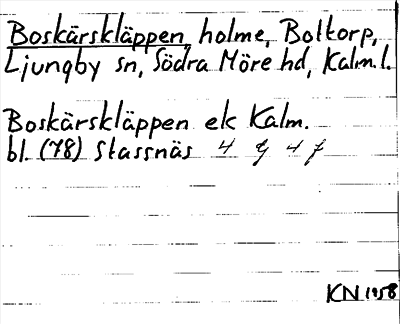 Boskärskläppen, holme, Boltorp,
Ljungby sn, Södra Möre hd, Kalm.l.
Boskärskläppen ek Kalm.
bl. (78) Stassnäs 4 g 4 f
KN 1958